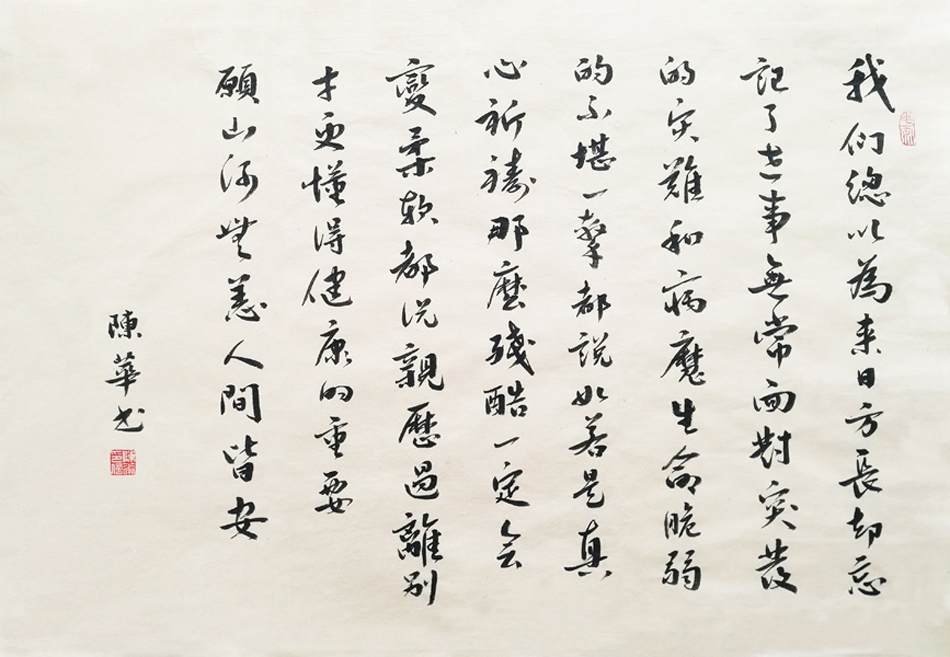 我们總以為来日方長却忘
記了世事無常面對突發
的灾難和病魔生命脆弱
的不堪一擊都說如若是真
心祈禱那麼殘酷一定会
變柔软都说親歷過離别
才更懂得健康的重要
願山河無恙人間皆安
陳華书